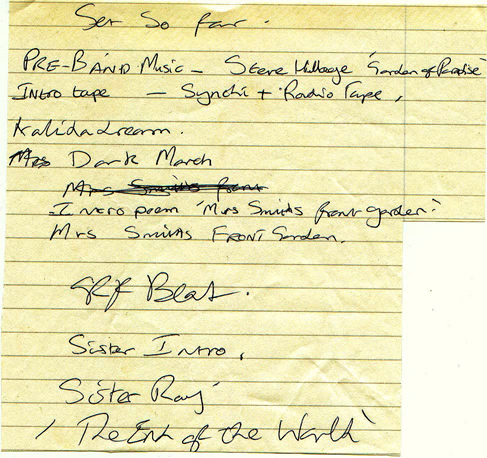 Set So far.
PRE-BAND Music - Steve Hillage 'Garden of Paradise'
Intro tape - Synthi + Radio Tape,
Kalidadream.
Dark March
Mrs Smiths front
Intro poem 'Mrs Smiths front garden.'
Mrs Smiths FRONT Garden.
Beat.
Sister Intro,
Sister Ray
'The End of the World'